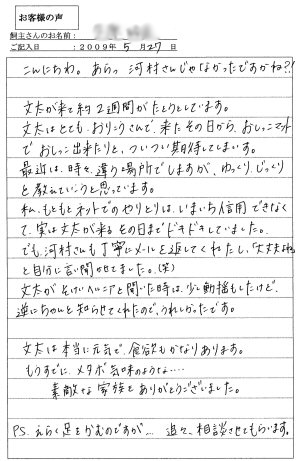 お客様の声
飼主さんのお名前:
ご記入日 : 2009年 5月 27日
こんにちわ。あらっ 河村さんじゃなかったですかね?!
文太が来て約2週間がたとうとしています。
文太はとても、おりこうさんで、来たその日から、おしっこマット
で おしっこ出来たりと、ついつい期待してしまいます。
最近は、時々、違う場所でしますが、ゆっくり、じっくり
と教えていこうと思っています。
私、もともとネットでのやりとりは、いまいち信用できなく
て、実は文太が来るその日までドキドキしていました。
でも、河村さんも丁寧にメールを返してくれたし、「大丈夫」
と自分に言い聞かせてました。(笑)
文太がそけいヘルニアと聞いた時は、少し動揺もしたけど、
逆にちゃんと知らせてくれたので、うれしかったです。
文太は本当に元気で、食欲もかなりあります。
もうすでに、メタボ気味のような…
素敵な家族をありがとうございました。
PS. えらく足をかむのですが… 追々、相談させてもらいます。